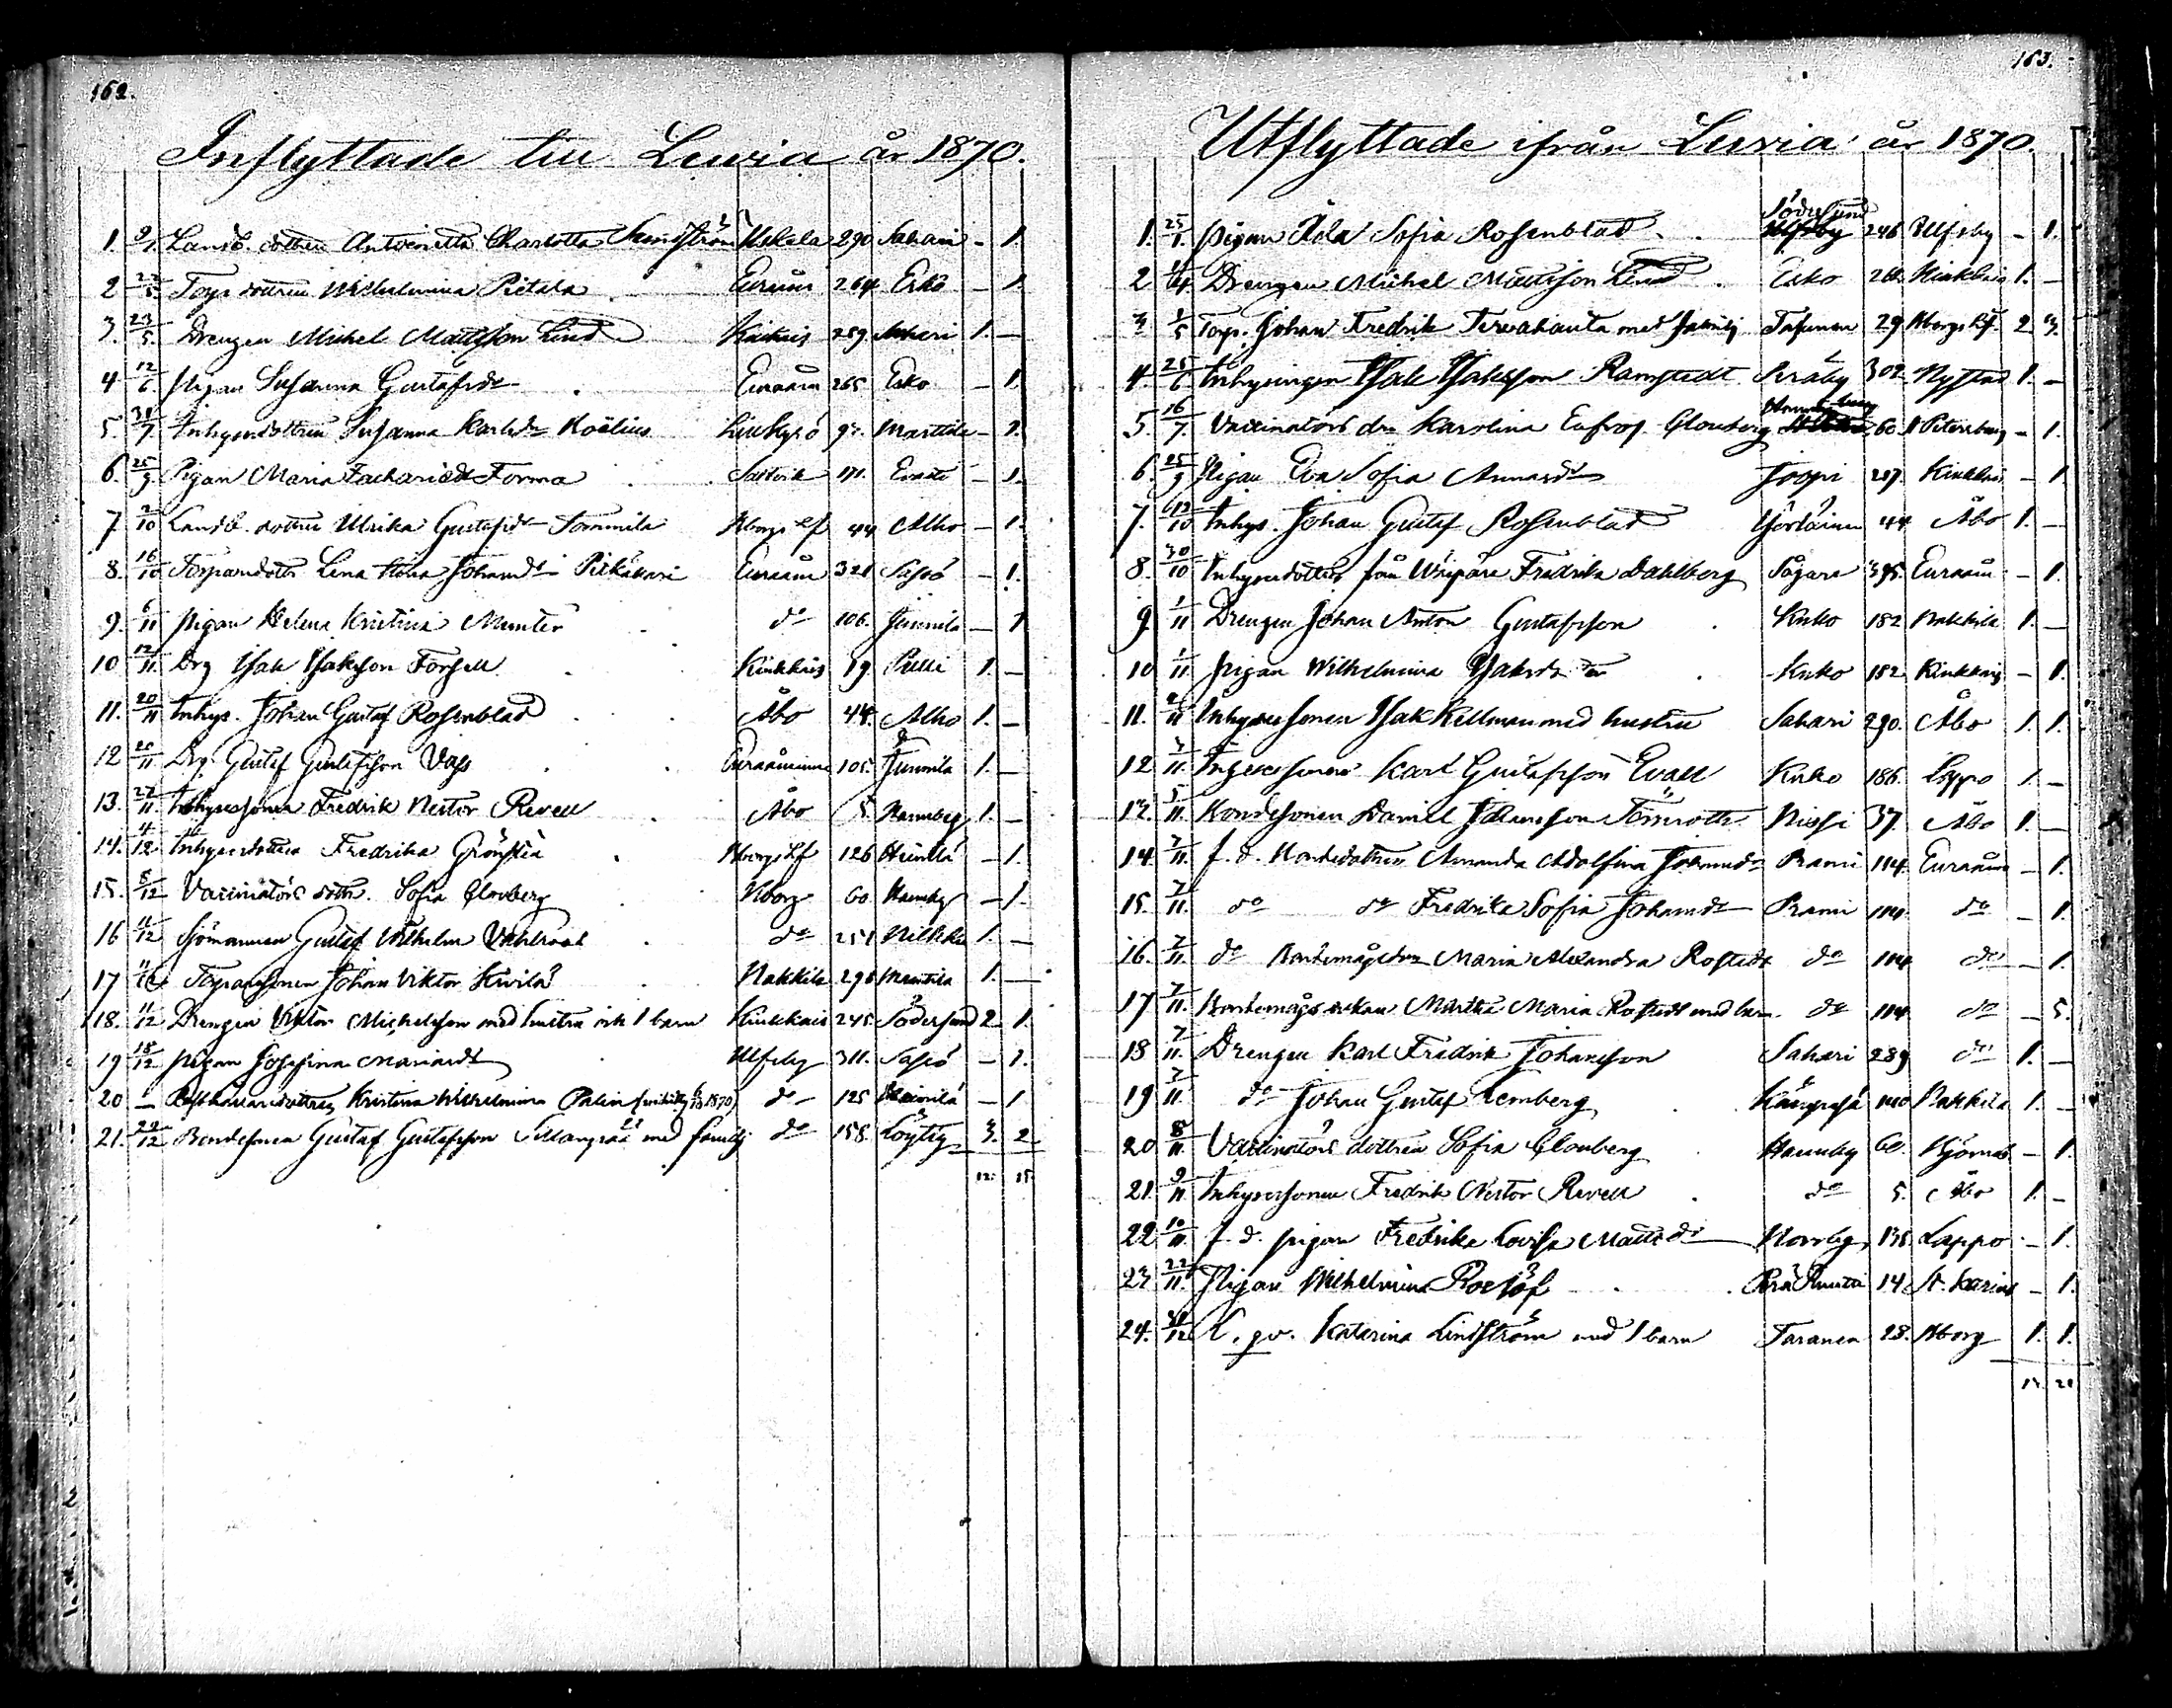 162.
Inflyttade till Luvia år 1870.
1. 9/1. Landb. dottren Antoinetta Charlotta Sundström Uskela 290 Sahari - 1.
2 22/5 Torp dottren Wilhelmina Pietala Euraåm 264 Esko - 1
3. 23/5. Drengen Michel Mattsson Lind Kiukais 259. Sahari 1. -
4 12/6. Pigan Susanna Gustafsdr Euraåm 265 Esko - 1.
5. 31/7. Inhysesdottren Susanna Karlsdr Koëlius Luvia 92. Marttila - 1.
6. 25/9. Pigan Maria Zachariædr Forma Sastmola 171. - 1.
7. 2/10 Landb. dottren Ulrika Gustafsdr Tommila Bborgs lf 44 Alho - 1.
8. 16/10 Torparedottr Lena Stina Johansdr Pitkäkari Euraåm 321 Sassi - 1.
9. 6/11 Pigan Helena Kristina Munter do 106. Junnila - 1
10 12/11. Drg Isak Isaksson Forsell Kiukkais 19. Pelli 1. -
11. 20/11 Inhys. Johan Gustaf Rosenblad Åbo 44. Alho 1. -
12 20/11 Drg. Gustaf Gustafsson Vass Euraåminne 105. Junnila 1. -
13. 27/11. Inhysessonen Fredrik Nestor Revell Åbo 5. Hannuby 1. -
14. 4/12 Inhysesdottren Fredrika Grönstén Bborgs lf 126 Heinilä - 1.
15. 8/12 Vaccinatörs dottr. Sofia Clouberg Bborg 60 Hannuby - 1.
16 11/12 Sjömannen Gustaf Wilhelm Vahlroos do 251 1. -
17 11/12 Torparesonen Johan Viktor Kivilä Nakkila 296 Marttila 1. -
18. 11/12 Drengen Viktor Michelsson med hustru och 1 barn Kiukkais 245. Södersund 2. 1.
19 18/12 Pigan Josefina Mariædr Ulfsby 311. Sassi - 1.
20 - Kristina Wilhelmina Palin do 125 Heinilä - 1
21. 29/12 Bondesonen Gustaf Gustafsson Sillanpää med familj do 158. Löytty 3. 2
12. 15.
163.
Utflyttade ifrån Luvia år 1870.
1. 25/1. Pigan Ada Sofia Rosenblad Södersund 246 Ulfsby - 1.
2 Drengen Michel Mattsson Lind Esko Kiukkais 1. -
3 1/5 Torp. Johan Fredrik Tervahauta med familj Tasanen 29 Bborgs lf. 2 3.
4. 25/6 Inhysingen Isak Isaksson Ramstedt Peräby 302 Nystad 1. -
5. 16/7. Vaccinatörs dr Karolina Eufros. Clouberg Hannuby 60. St Petersburg - 1.
6. 25/9 Pigan Eva Sofia Annasdr Joopi 257. Kiukkais - 1
7. 12/10 Inhys. Johan Gustaf Rosenblad 44 Åbo 1. -
8. 30/10 Inhysesdottren från Väipäre Fredrika Dahlberg Sågare 395. Euraåm - 1.
9. 1/11 Drengen Johan Anton Gustafsson Kuko 182 Nakkila 1. -
10 1/11. Pigan Wilhelmina Isaksdr Kuko 182 Kiukkais - 1.
11. 2/11 Inhysessonen Isak Kellman med hustru Sahari 290. Åbo 1. 1.
12 3/11. Inhysessonen Karl Gustafsson Evall Kuko 186. Loppo 1. -
13. 5/11. Bondesonen Daniel Johansson Tömroth Nissi 37. Åbo 1. -
14. 7/11. f. d. Bondedottren Amanda Adolfina Johansdr Rami 114. Euraåm - 1.
15. 7/11. do do Fredrika Sofia Johansdr Rami 114. do - 1.
16. 7/11. do Bondemågsdr Maria Alexandra Rostedt do 114 do - 1.
17 7/11. Bondemågs enkan Martha Maria Rostedt med barn do 114 do - 5.
18 7/11. Drengen Karl Fredrik Johansson Sahari 289 do 1. -
19 7/11. do Johan Gustaf Lemberg 140 Nakkila 1. -
20 8/11. Vaccinatörs dottren Sofia Clouberg Hannuby 60. Bjömeb - 1.
21. 9/11. Inhysessonen Fredrik Nestor Revell do 5. Åbo 1. -
22 10/11. f. d. pigan Fredrika Lovisa Mattsdr Norrby 135. Lappo - 1.
23. 22/11. Pigan Wilhelmina Roslöf 14. St. Karins - 1.
24. 31/12 Katarina Lindström med 1 barn Taranen 28. Bborg 1. 1.